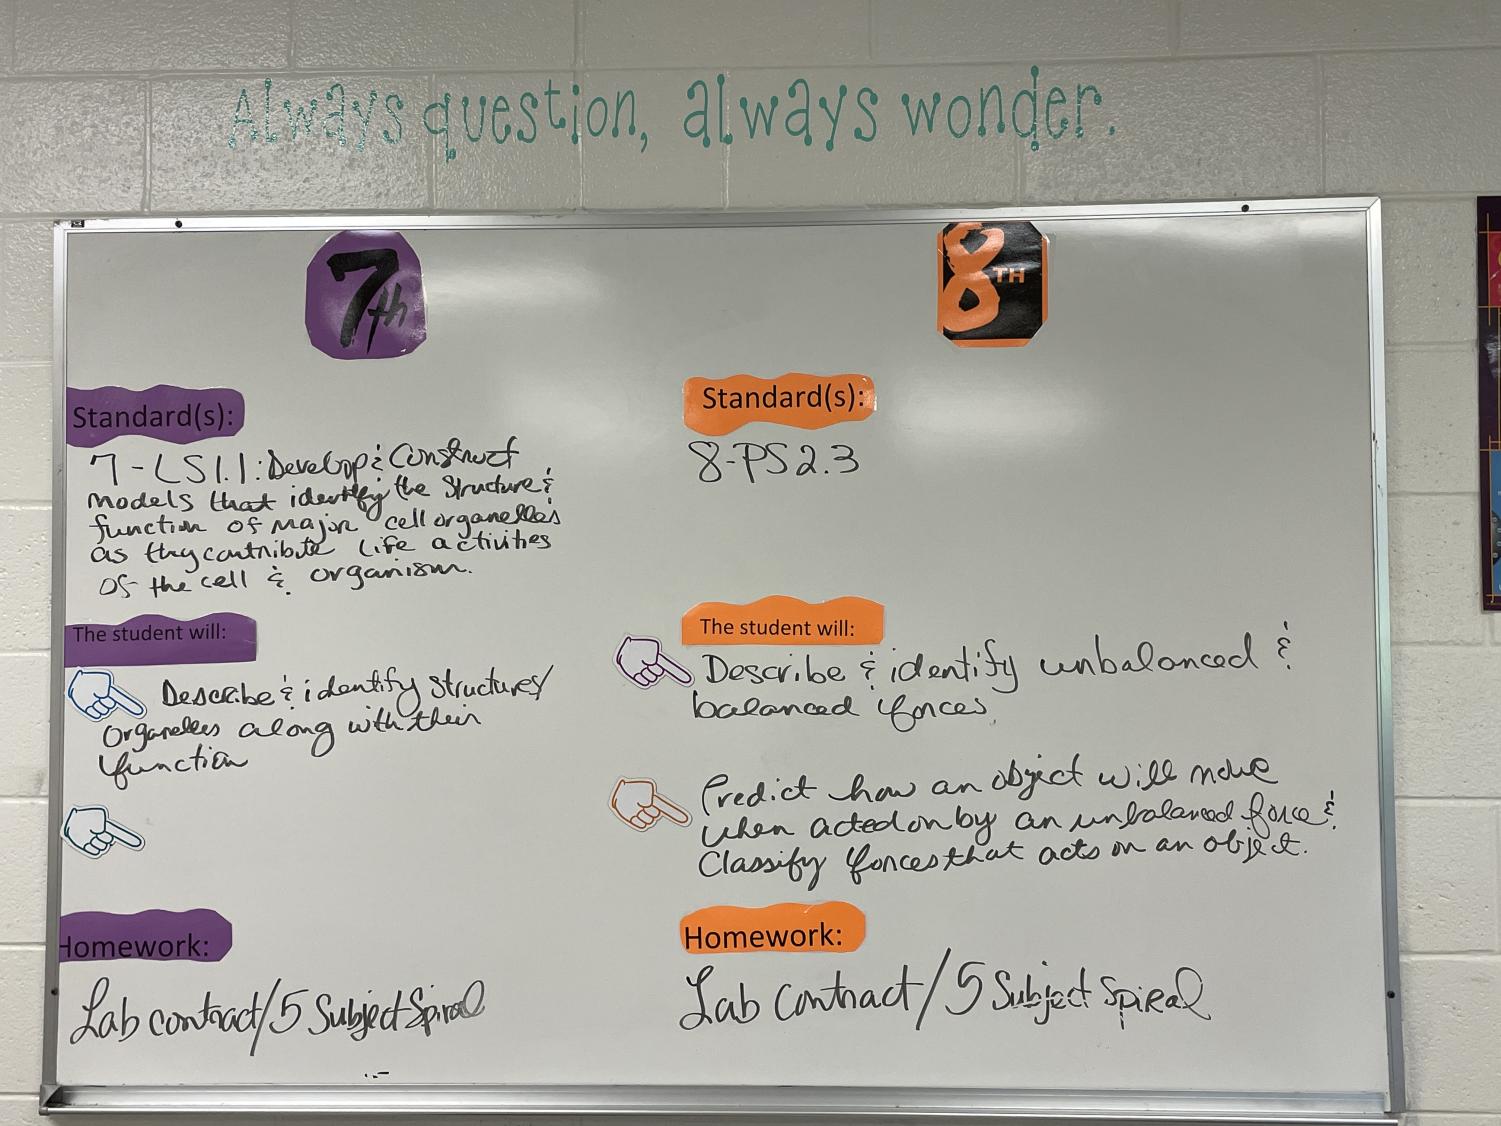 Always question, always wonder.
7th
Standard(s):
7-LS1.1: Develop & Construct
models that identify the structure &
function of major cell organelles
as they contribute life activities
of the cell & organism.
The student will:
Describe & identify structures/
organelles along with their
function
Homework:
Lab contract/5 Subject Spiral
8TH
Standard(s):
8-PS2.3
The student will:
Describe & identify unbalanced &
balanced forces.
Predict how an object will move
when acted on by an unbalanced force &
Classify forces that acts on an object.
Homework:
Lab Contract/5 Subject Spiral